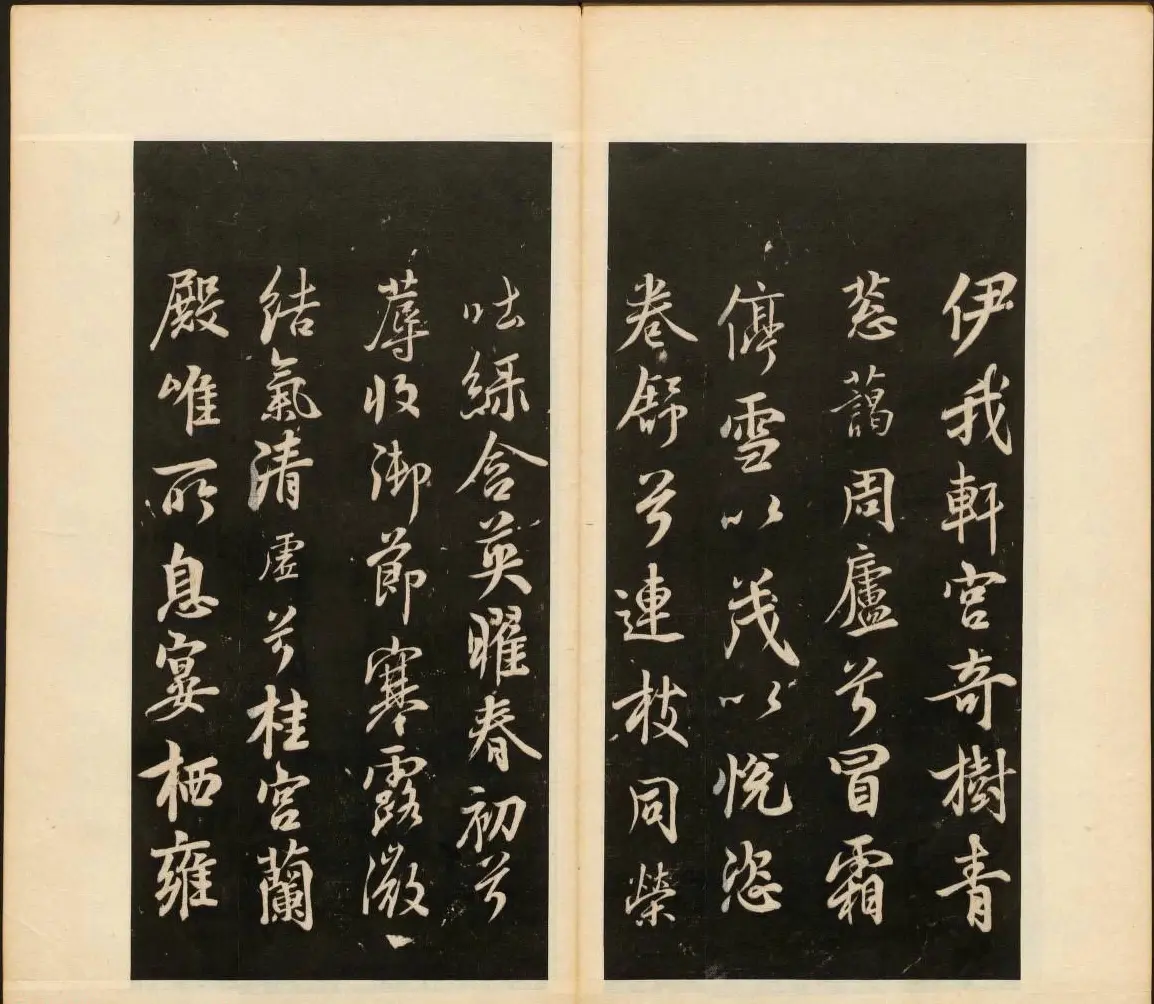 伊我軒宮奇樹青
葱蔼周廬兮冒霜
停雪以茂以悅恣
卷舒兮連枝同榮
吐綠含英曜春初兮
蓐收御節寒露微
結氣清虛兮桂宮蘭
殿唯所息宴栖雍